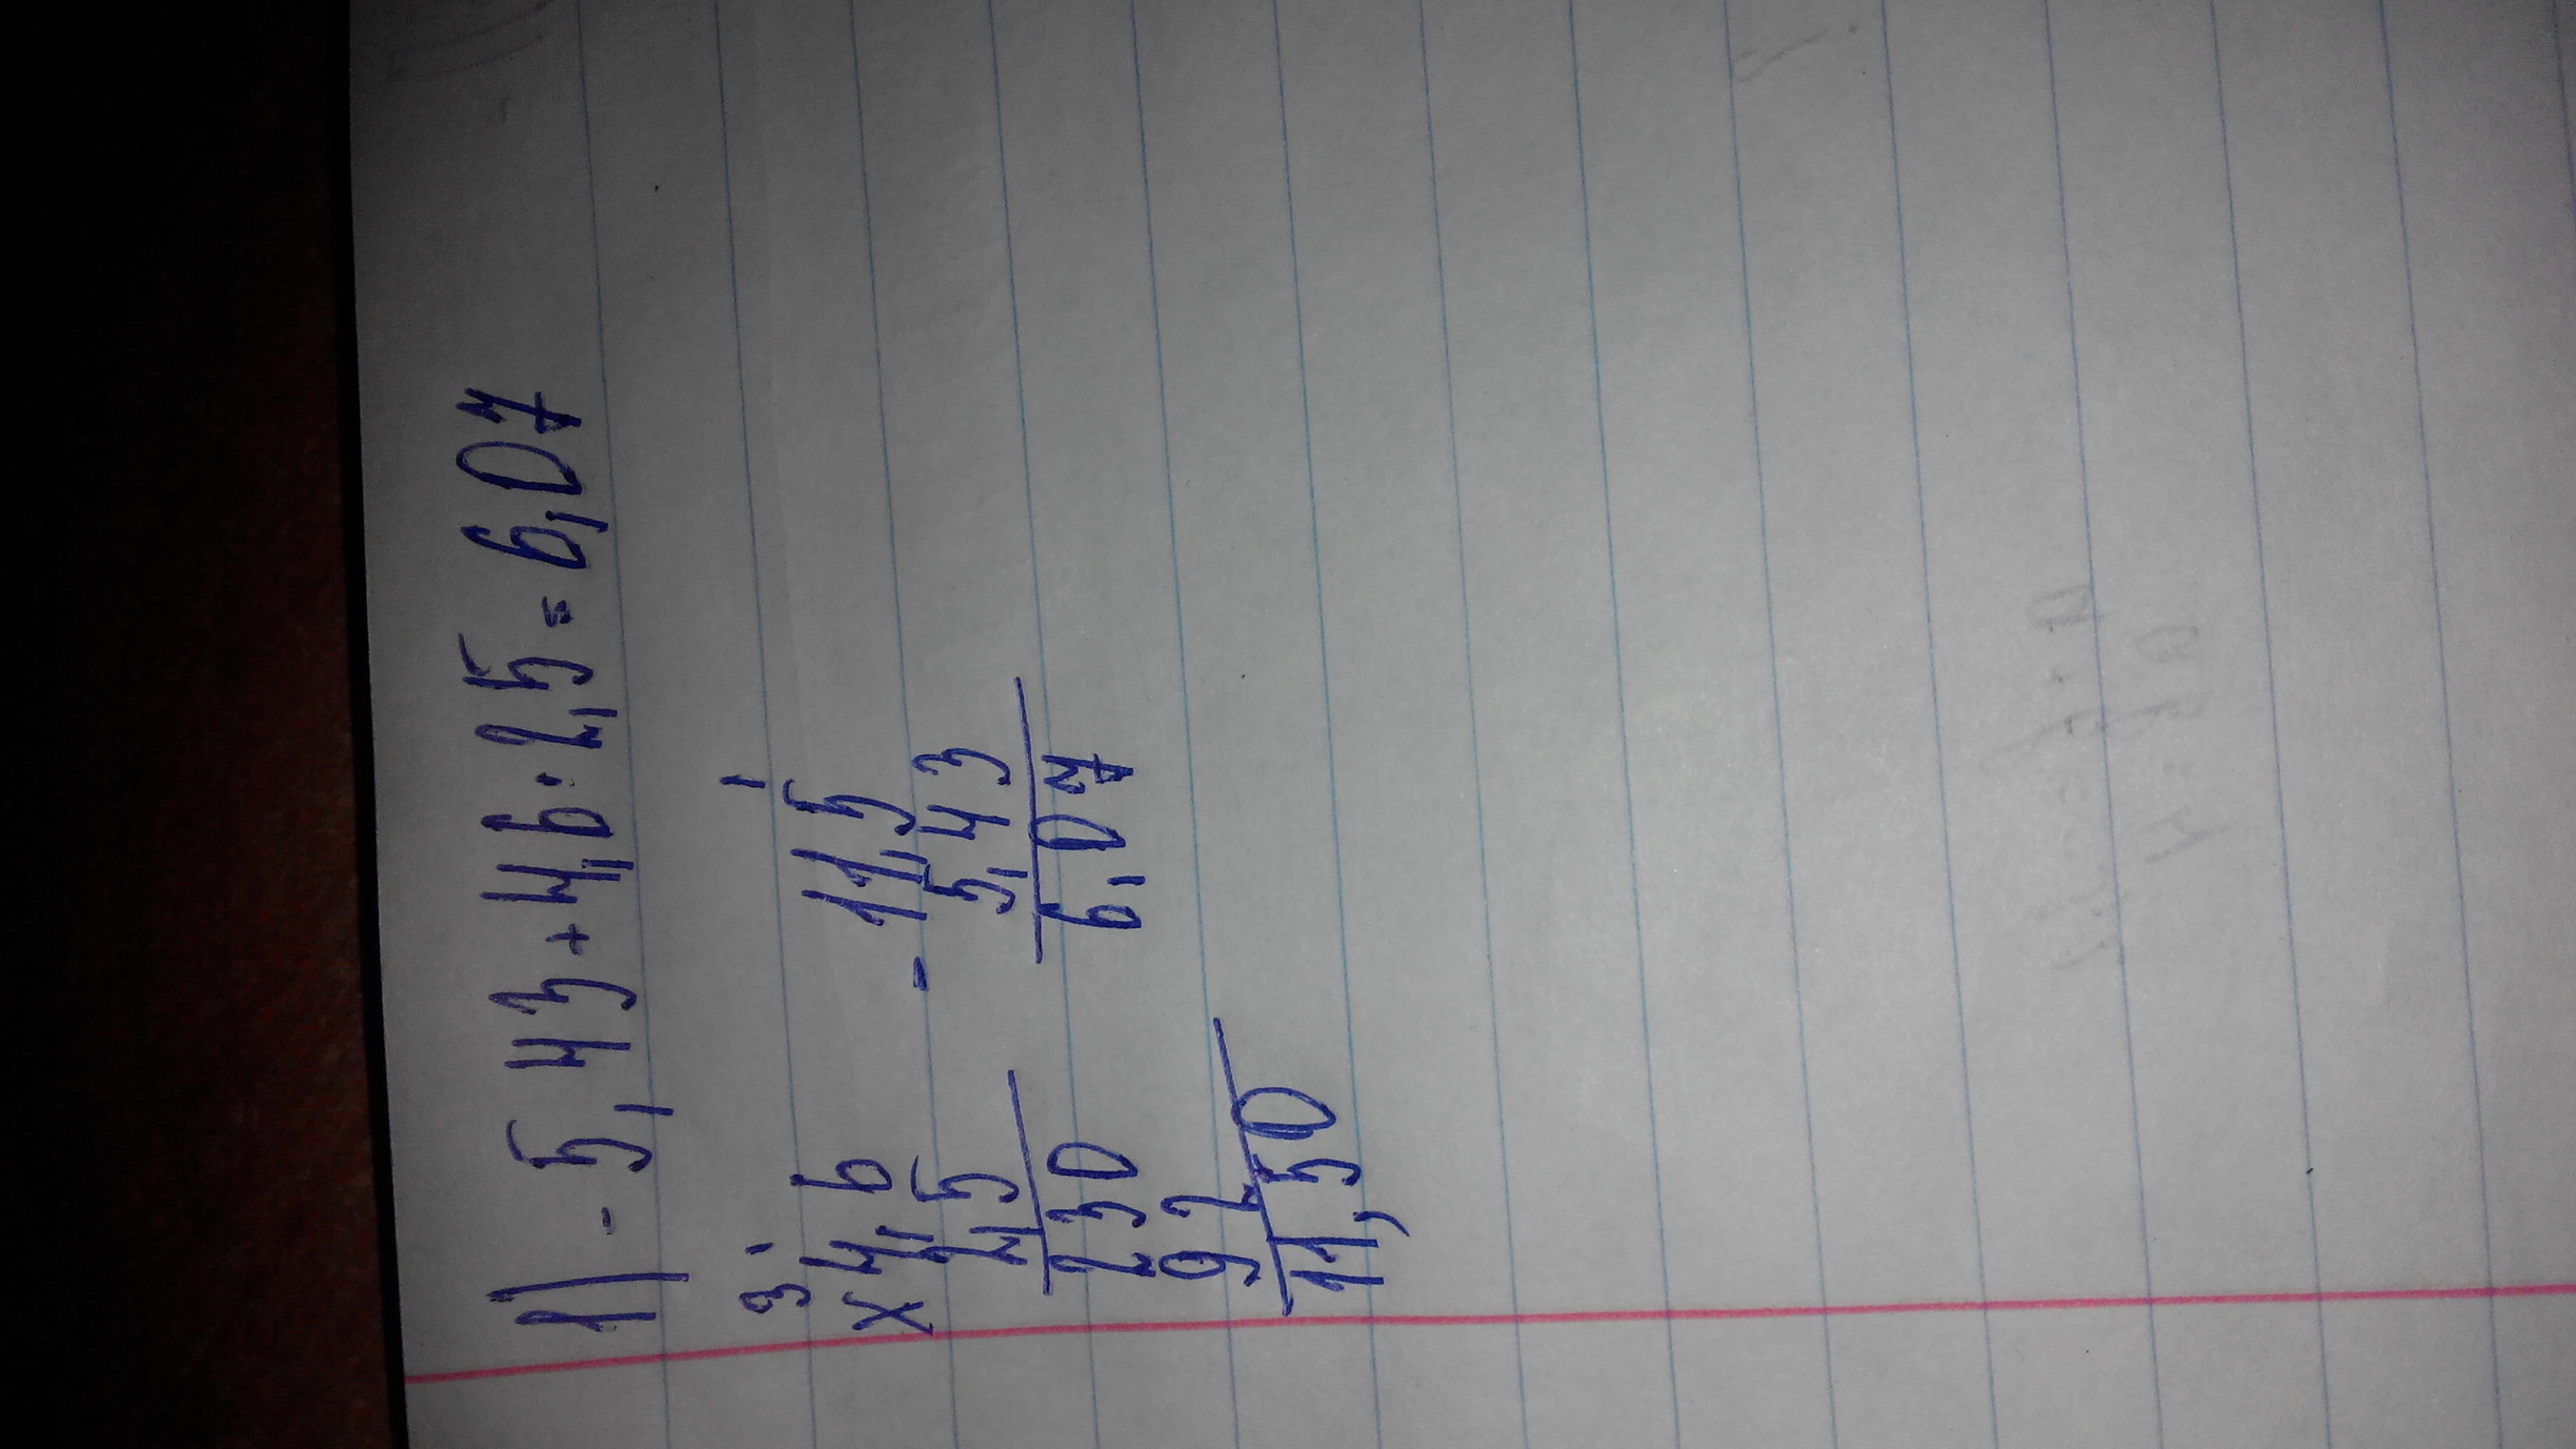 1) - 5,43 + 4,6 · 2,5 = 6,07
3 1
× 4,6
2,5
230
92
11,50
1
- 11,5
5,43
6,07